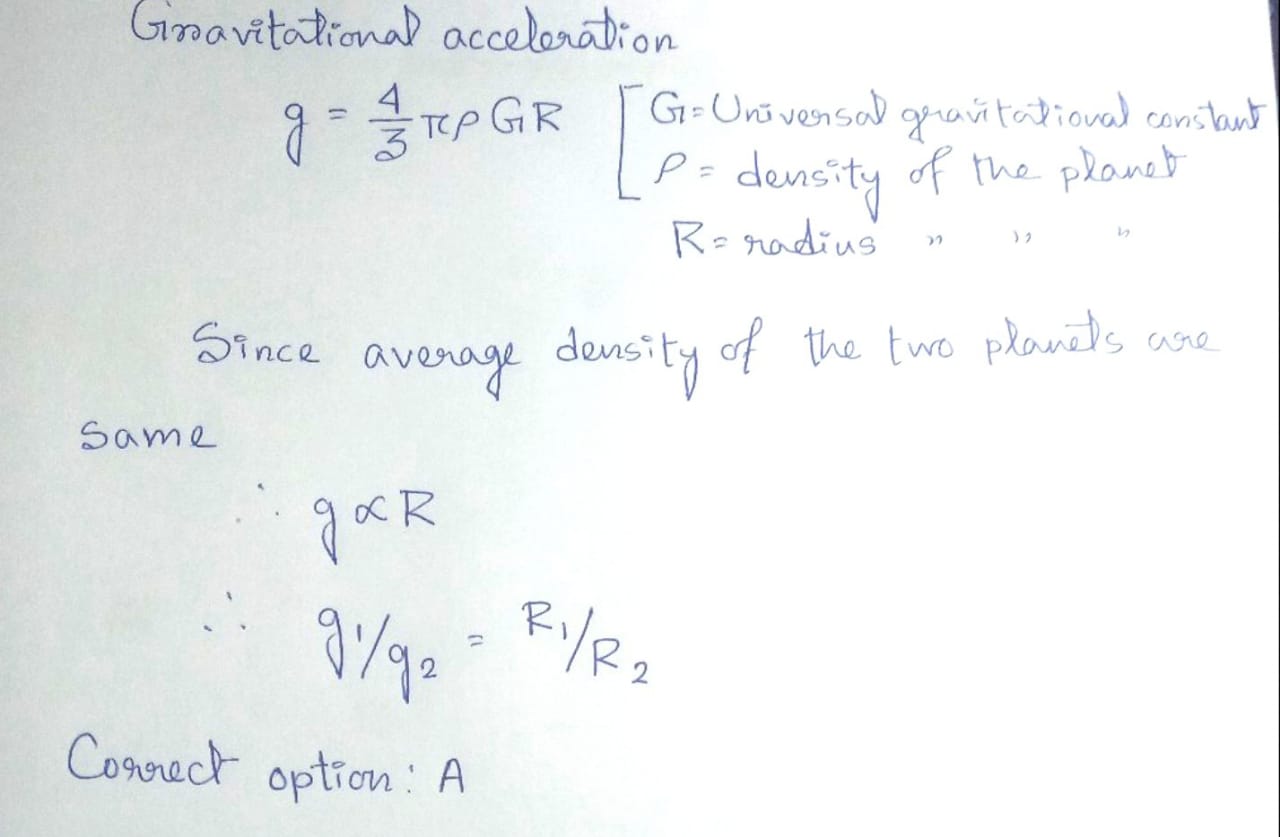 Gravitational acceleration
g = 4/3 πρGR [G = Universal gravitational constant
ρ = density of the planet
R = radius " " "
Since average density of the two planets are
same
∴ g ∝ R
∴ g1/g2 = R1/R2
Correct option: A